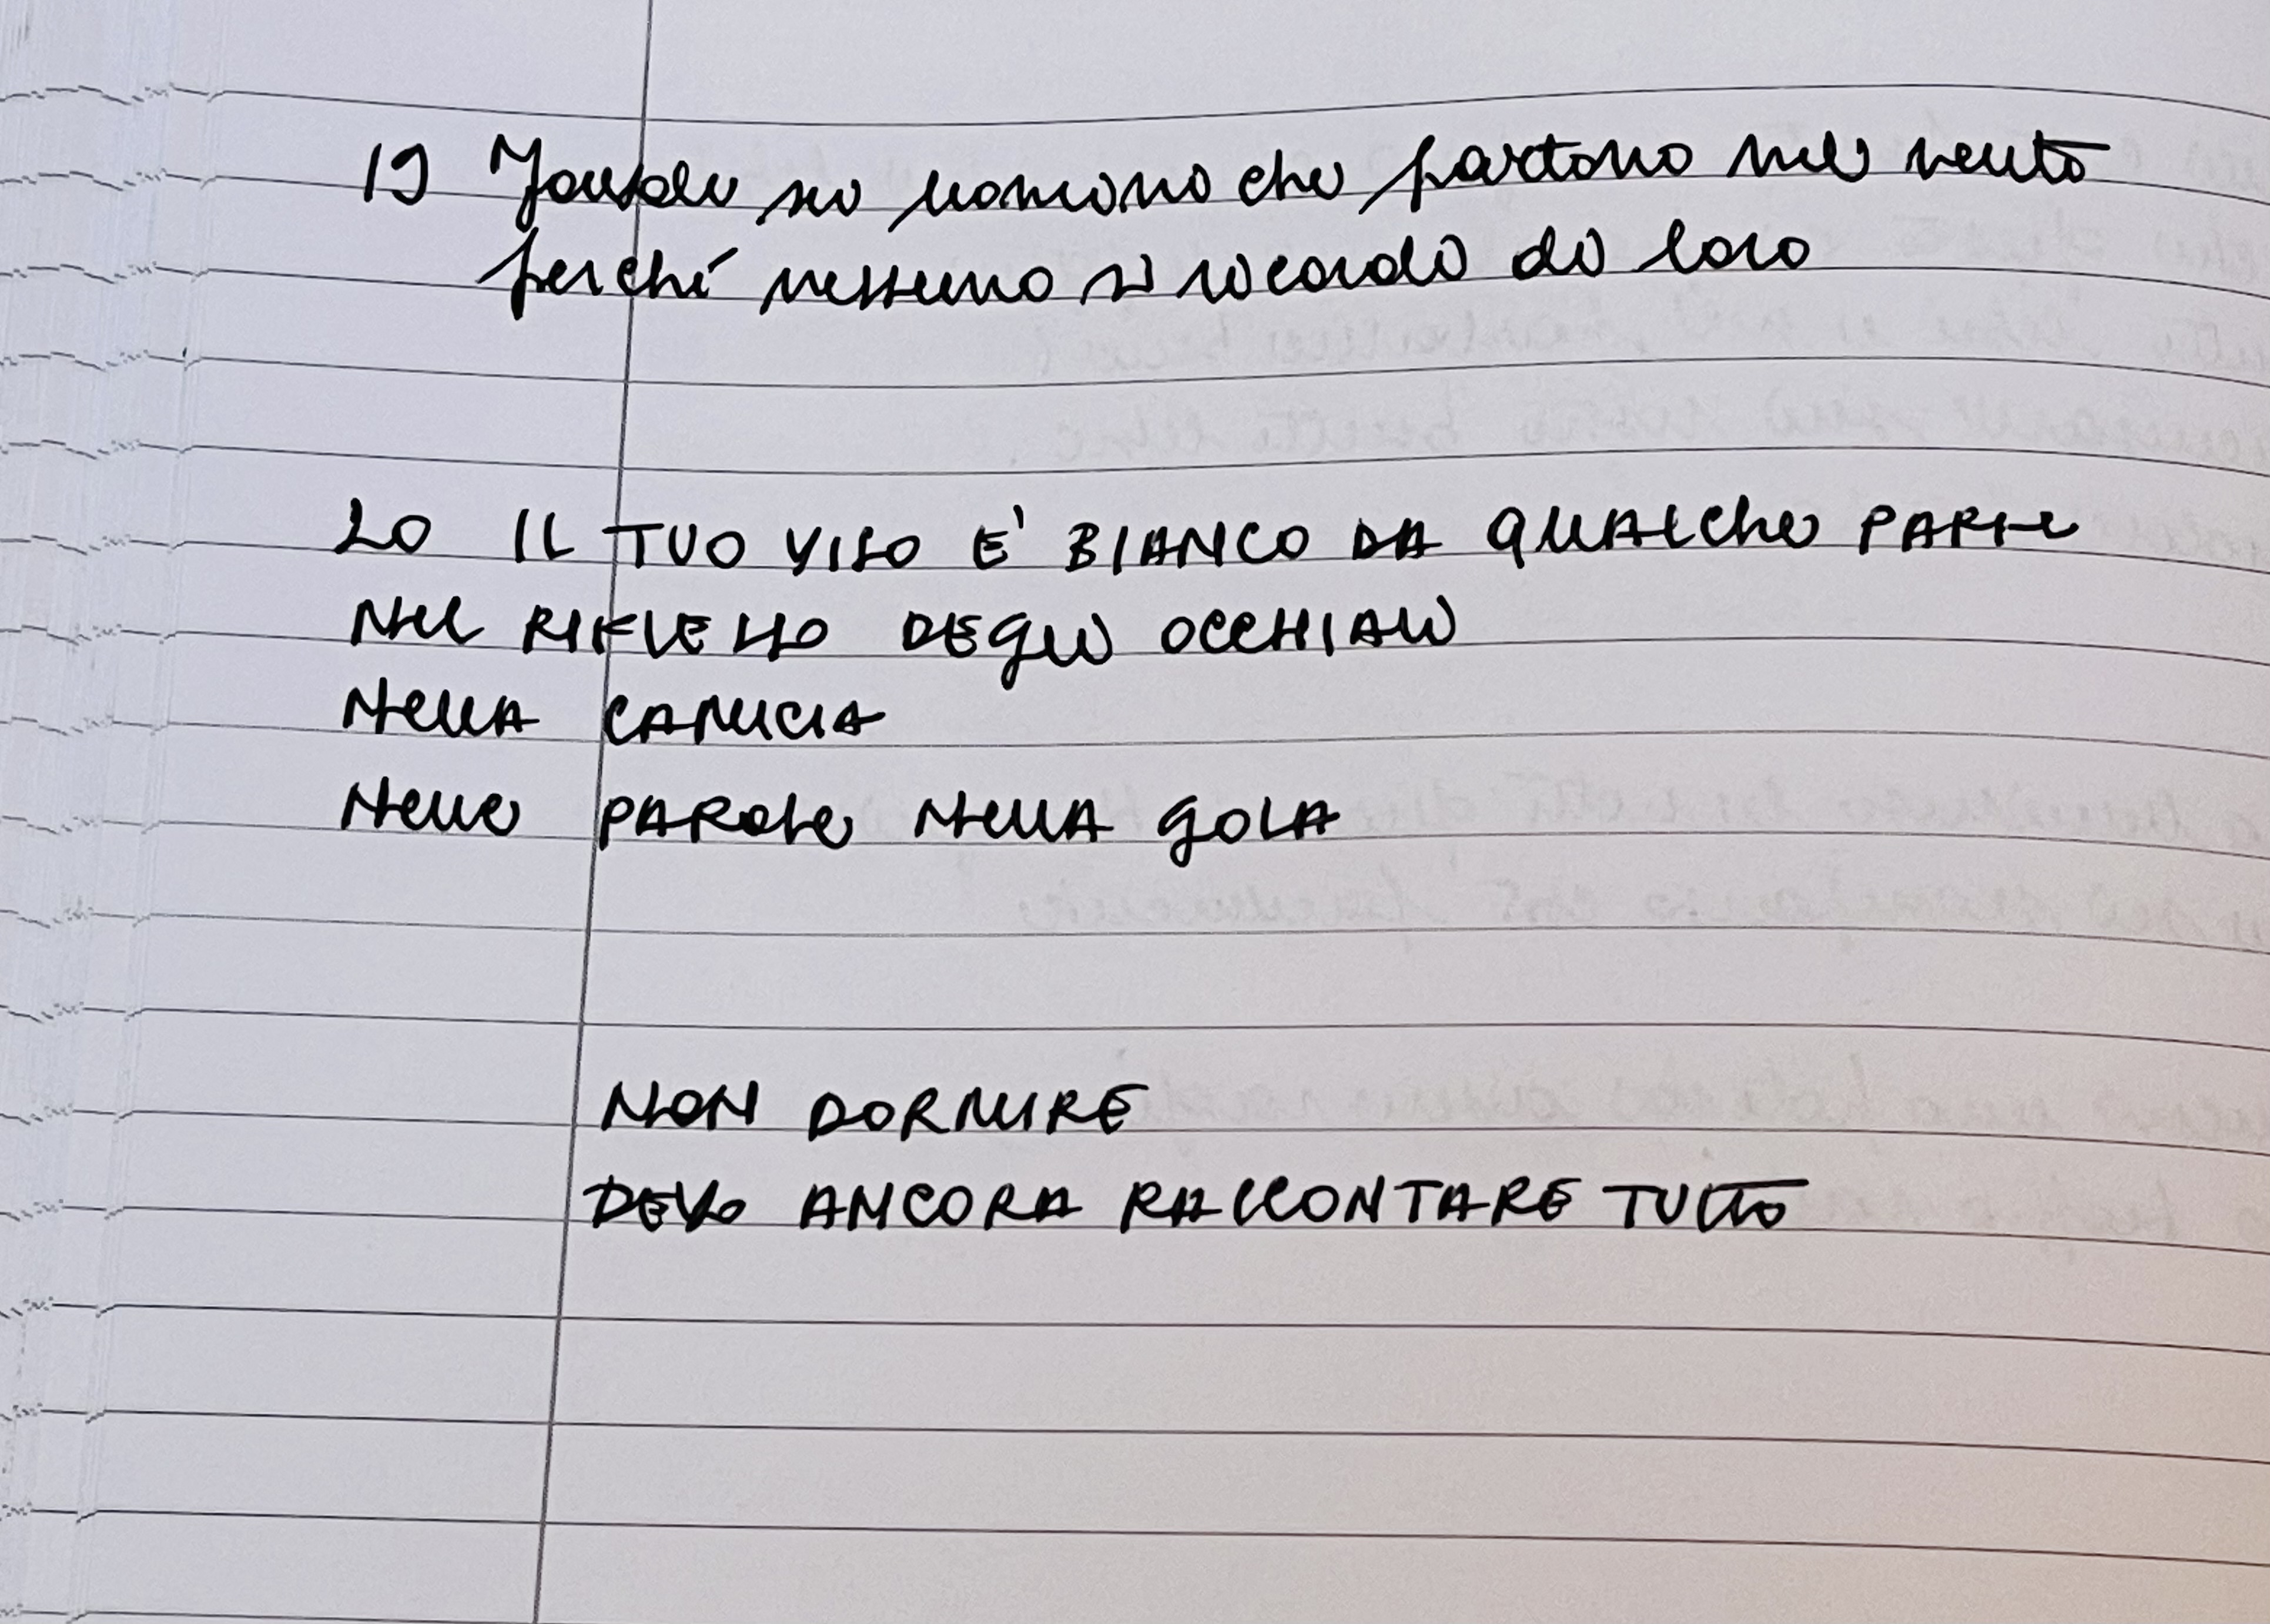 19 se uomini che partono nel vento
perché nessuno si ricordi di loro
20 IL TUO VISO E' BIANCO DA QUALCHE PARTE
NEL RIFLESSO DEGLI OCCHIALI
NELLA CAMICIA
NELLE PAROLE NELLA GOLA
NON DORMIRE
DEVO ANCORA RACCONTARE TUTTO